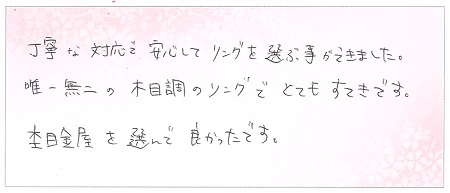 丁寧な対応で安心してリングを選ぶ事ができました。
唯一無二の木目調のリングでとてもすてきです。
杢目金屋を選んで良かったです。